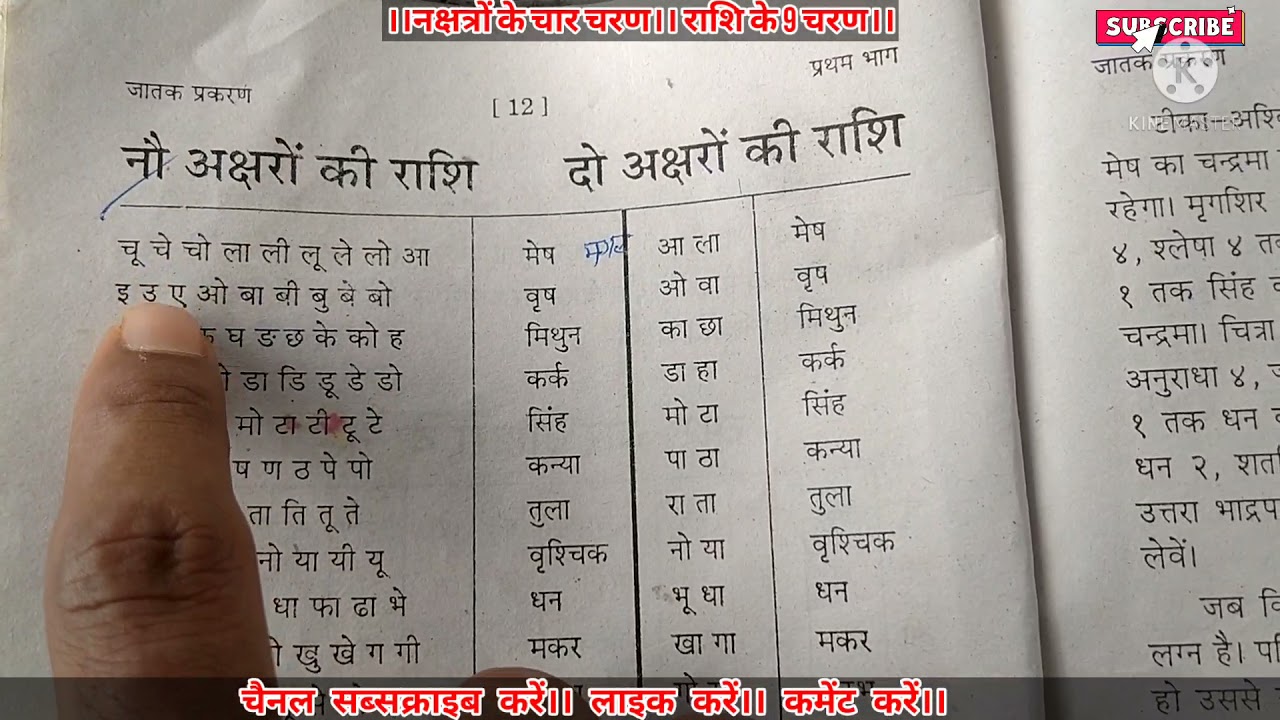 ।।नक्षत्रों के चार चरण।। राशि के 9 चरण।।
SUBSCRIBE
जातक प्रकरण
[ 12 ]
प्रथम भाग
नौ अक्षरों की राशि दो अक्षरों की राशि
चू चे चो ला ली लू ले लो आ मेष आ ला मेष
इ उ ए ओ बा बी बु बे बो वृष ओ वा वृष
घ ङ छ के को ह मिथुन का छा मिथुन
डा डि डू डे डो कर्क डा हा कर्क
मो टा टी टू टे सिंह मो टा सिंह
ष ण ठ पे पो कन्या पा ठा कन्या
ता ति तू ते तुला रा ता तुला
नो या यी यू वृश्चिक नो या वृश्चिक
धा फा ढा भे धन भू धा धन
खु खे ग गी मकर खा गा मकर
जातक प्रकरण
टीका—अश्वि
मेष का चन्द्रमा
रहेगा। मृगशिर
४, श्लेषा ४ तक
१ तक सिंह
चन्द्रमा। चित्रा
अनुराधा ४,
१ तक धन
धन २,
उत्तरा भाद्रपद
लेवें।
जब
लग्न है।
हो उससे
चैनल सब्सक्राइब करें।। लाइक करें।। कमेंट करें।।